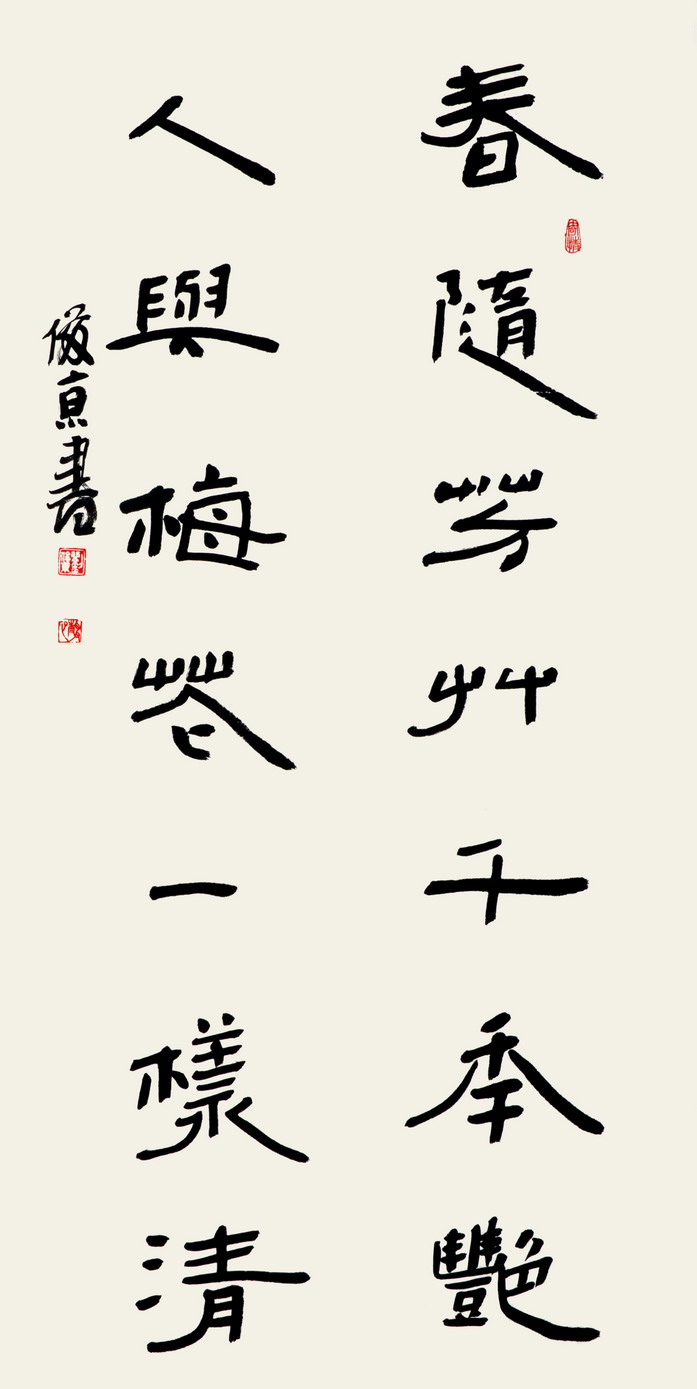 春隨芳艸千秊豔
人與梅花一樣清
俊京書